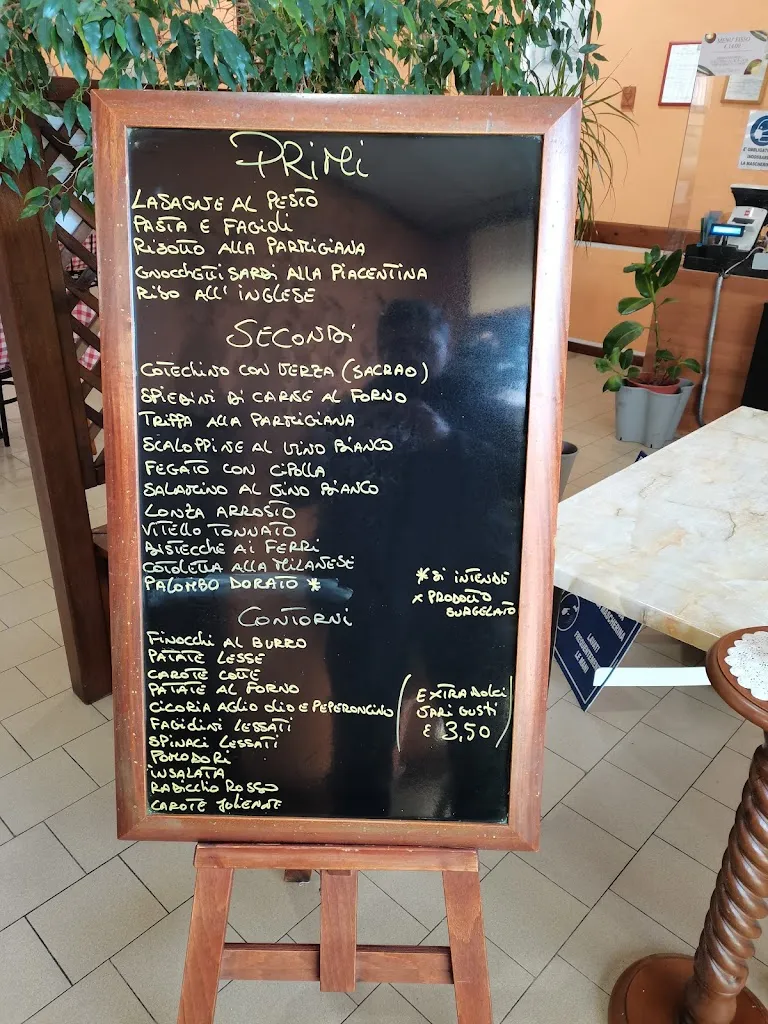 PRIMI
LASAGNE AL PESTO
PASTA E FAGIOLI
RISOTTO ALLA PARMIGIANA
GNOCCHETTI SARDI ALLA PIACENTINA
RISO ALL'INGLESE
SECONDI
COTECHINO CON VERZA (SACRAO)
SPIEDINI DI CARNE AL FORNO
TRIPPA ALLA PARMIGIANA
SCALOPPINE AL VINO BIANCO
FEGATO CON CIPOLLA
SALAMINO AL VINO BIANCO
LONZA ARROSTO
VITELLO TONNATO
BISTECCHE AI FERRI
COTOLETTA ALLA MILANESE
PALOMBO DORATO *
* SI INTENDE
x PRODOTTO
SURGELATO
CONTORNI
FINOCCHI AL BURRO
PATATE LESSE
CAROTE COTTE
PATATE AL FORNO
CICORIA AGLIO OLIO E PEPERONCINO
FAGIOLINI LESSATI
SPINACI LESSATI
POMODORI
INSALATA
RADICCHIO ROSSO
CAROTE JULIENNE
(EXTRA DOLCI
VARI GUSTI
€ 3,50)
MENU' FISSO
LA MASCHERINA
MASCHERINA
LAVATI
FREQUENTEMENTE
LE MANI